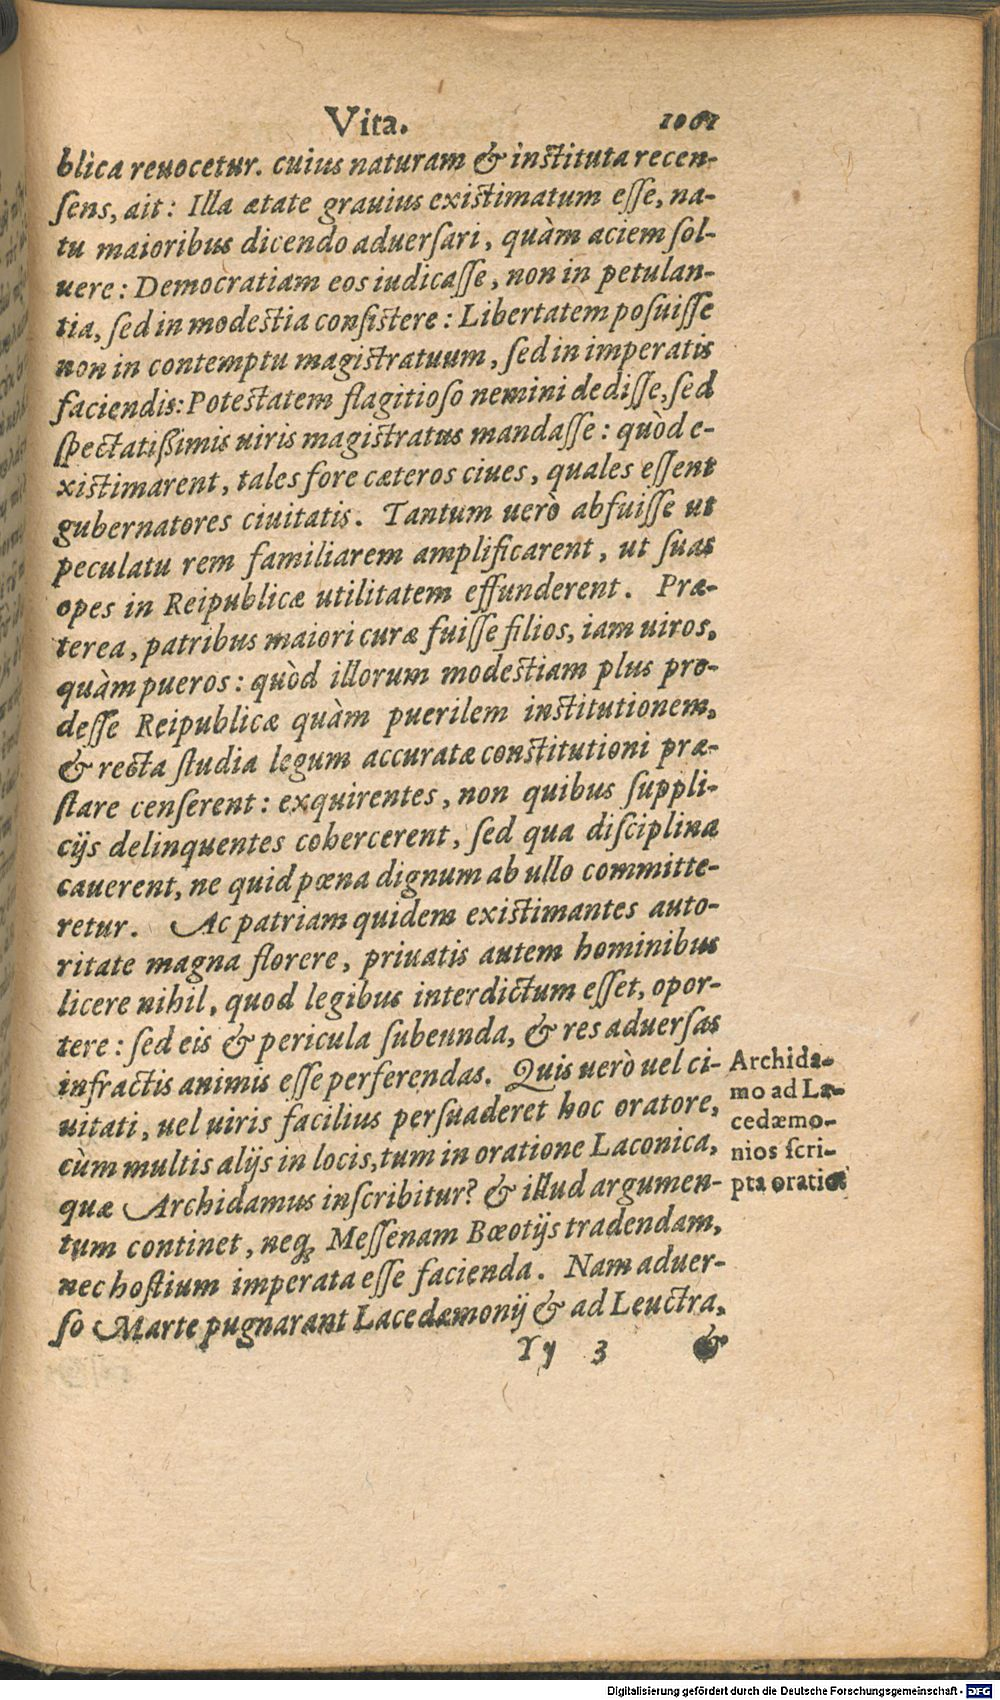 Vita. 1061
blica reuocetur. cuius naturam & instituta recen-
sens, ait: Illa ætate grauius existimatum esse, na-
tu maioribus dicendo aduersari, quàm aciem sol-
uere: Democratiam eos iudicasse, non in petulan-
tia, sed in modestia consistere: Libertatem posuisse
non in contemptu magistratuum, sed in imperatis
faciendis: Potestatem flagitioso nemini dedisse, sed
spectatißimis uiris magistratus mandasse: quòd e-
xistimarent, tales fore cæteros ciues, quales essent
gubernatores ciuitatis. Tantum uerò abfuisse ut
peculatu rem familiarem amplificarent, ut suas
opes in Reipublicæ utilitatem effunderent. Præ-
terea, patribus maiori curæ fuisse filios, iam uiros,
quàm pueros: quòd illorum modestiam plus pro-
desse Reipublicæ quàm puerilem institutionem,
& recta studia legum accuratæ constitutioni præ-
stare censerent: exquirentes, non quibus suppli-
cijs delinquentes cohercerent, sed qua disciplina
cauerent, ne quid pœna dignum ab ullo committe-
retur. Ac patriam quidem existimantes auto-
ritate magna florere, priuatis autem hominibus
licere nihil, quod legibus interdictum esset, opor-
tere: sed eis & pericula subeunda, & res aduersas
infractis animis esse perferendas. Quis uerò uel ci-
uitati, uel uiris facilius persuaderet hoc oratore,
cùm multis alijs in locis, tum in oratione Laconica,
quæ Archidamus inscribitur? & illud argumen-
tum continet, neq; Messenam Bœotijs tradendam,
nec hostium imperata esse facienda. Nam aduer-
so Marte pugnarant Lacedæmonij & ad Leuctra,
Yy 3 &
Archida-
mo ad La-
cedæmo-
nios scri-
pta oratio
Digitalisierung gefördert durch die Deutsche Forschungsgemeinschaft - DFG